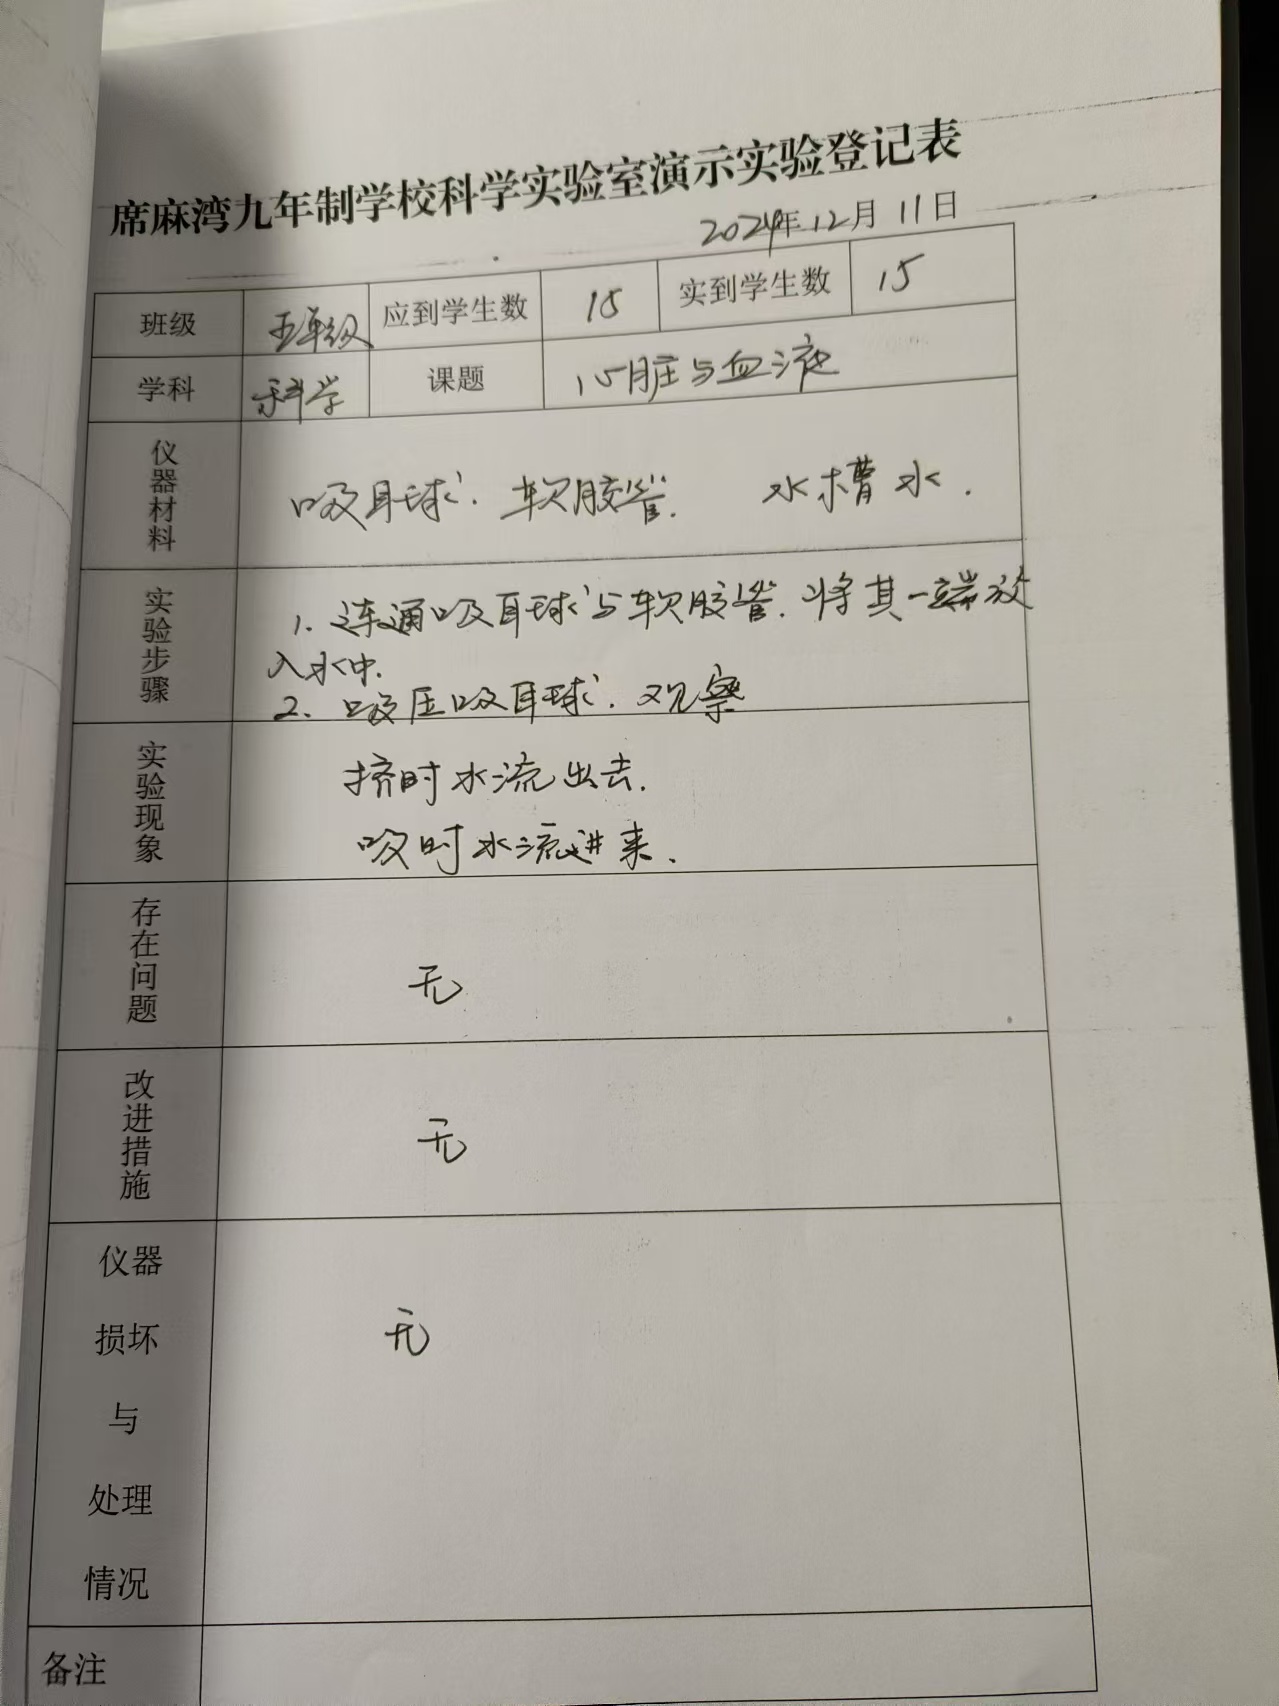 席麻湾九年制学校科学实验室演示实验登记表
2024年12月11日
班级 五年级 应到学生数 15 实到学生数 15
学科 科学 课题 心脏与血液
仪器材料 吸耳球. 软胶管. 水槽 水.
实验步骤 1. 连通吸耳球与软胶管. 将其一端放
入水中.
2. 吸压吸耳球. 观察
实验现象 挤时水流出去.
吸时水流进来.
存在问题 无
改进措施 无
仪器
损坏 无
与
处理
情况
备注